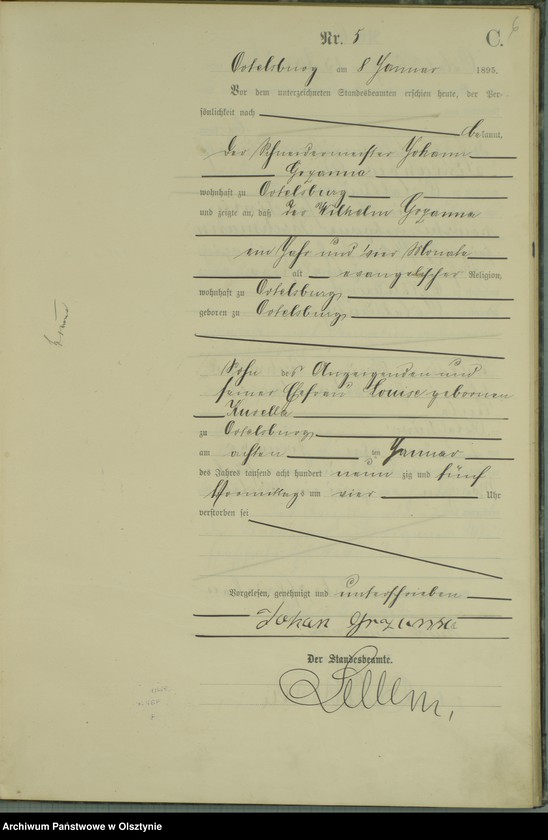 6
Nr. 5 C.
Ortelsburg am 8 Januar 1895.
Vor dem unterzeichneten Standesbeamten erschien heute, der Per-
sönlichkeit nach
bekannt,
der Schneidermeister Johann
wohnhaft zu Ortelsburg
und zeigte an, daß der Wilhelm
ein Jahr und vier Monate
alt evangelischer Religion,
wohnhaft zu Ortelsburg
geboren zu Ortelsburg
Sohn des Anzeigenden und
seiner Ehefrau Louise geborenen
Kusella
zu Ortelsburg
am achten ten Januar
des Jahres tausend acht hundert neun zig und fünf
Vormittags um vier Uhr
verstorben sei
Vorgelesen, genehmigt und unterschrieben
Johan
Der Standesbeamte.
Archiwum Państwowe w Olsztynie